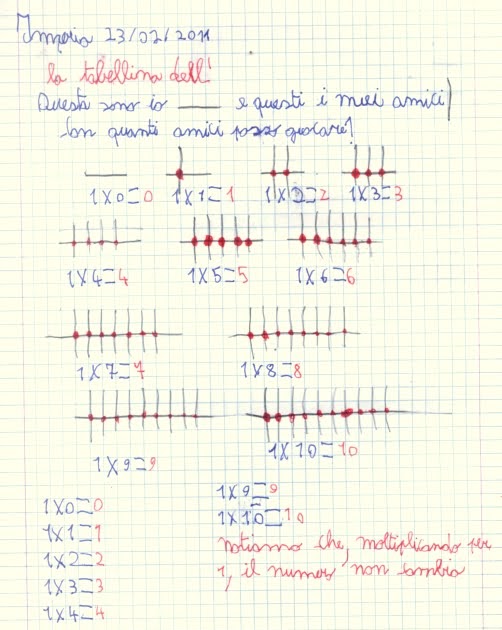 Imperia 23/02/2011
la tabellina dell'
Questa sono io ___ e questi i miei amici
Con quanti amici posso giocare?
1X0=0 1X1=1 1X2=2 1X3=3
1X4=4 1X5=5 1X6=6
1X7=7 1X8=8
1X9=9 1X10=10
1X0=0
1X1=1
1X2=2
1X3=3
1X4=4
1X9=9
1X10=10
notiamo che, moltiplicando per
1, il numero non cambia